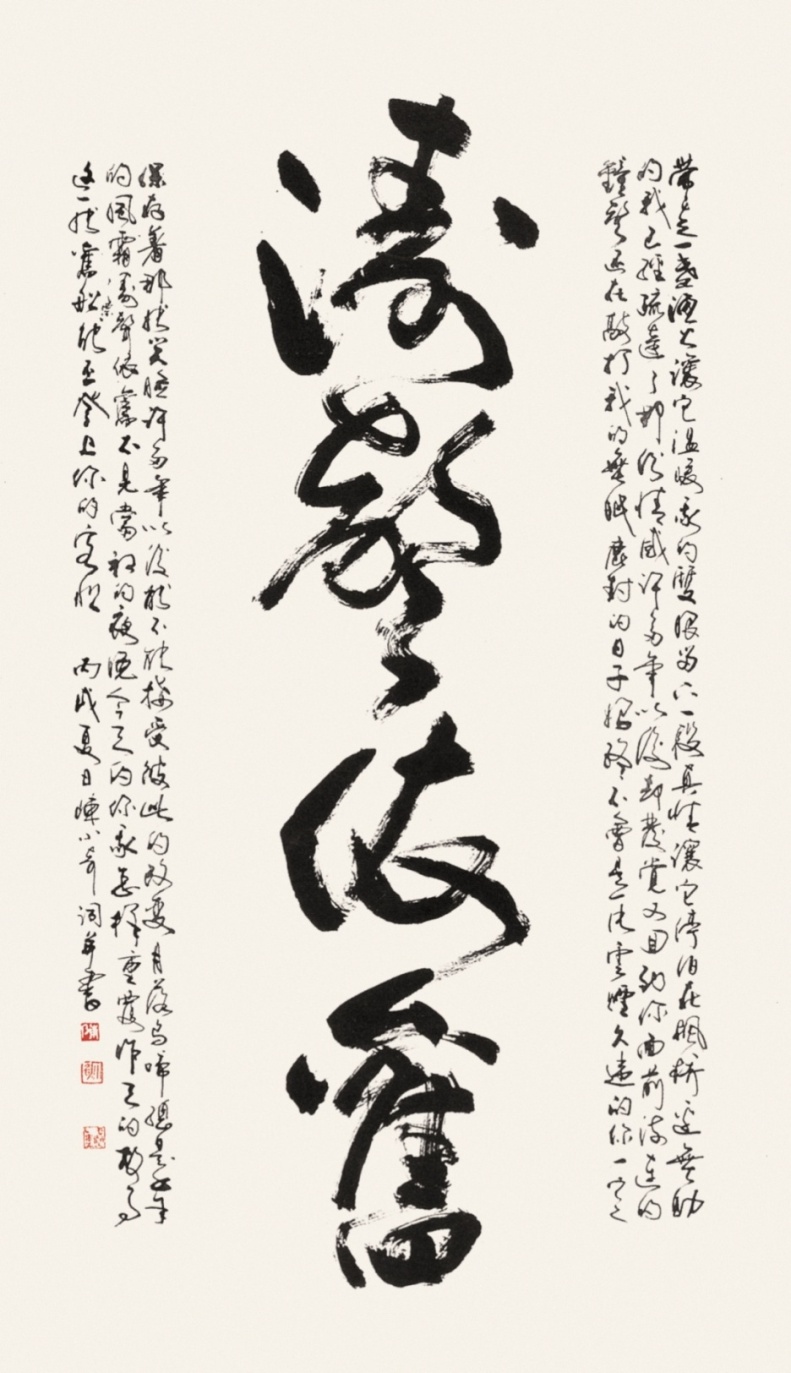 帶走一盞漁火讓它溫暖我的雙眼留下一段真情讓它停泊在楓橋邊無助
的我已經疏遠了那份情感許多年以後却發覺又回到你面前流連的
鐘聲還在敲打我的無眠塵封的日子始終不會是一片雲煙久違的你一定
濤聲依舊
保存著那張笑臉許多年以後能不能接受彼此的改變月落烏啼總是千年
的風霜濤聲依舊不見當初的夜晚今天的你我怎樣重複昨天的故事
這一張舊船票能否登上你的客船 丙戌夏日陳小奇詞并書